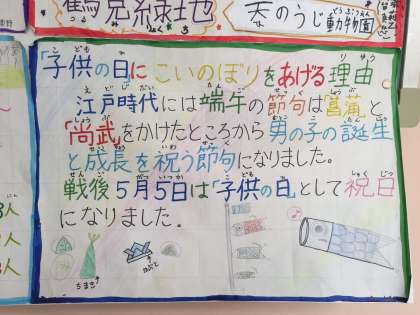 鶴見緑地
天のうじ動物園
「子供の日」にこいのぼりをあげる理由
江戸時代には端午の節句は菖蒲と
「尚武」をかけたところから男の子の誕生
と成長を祝う節句になりました。
戦後5月5日は「子供の日」として祝日
になりました。
ちまき
かぶと
人
人
人